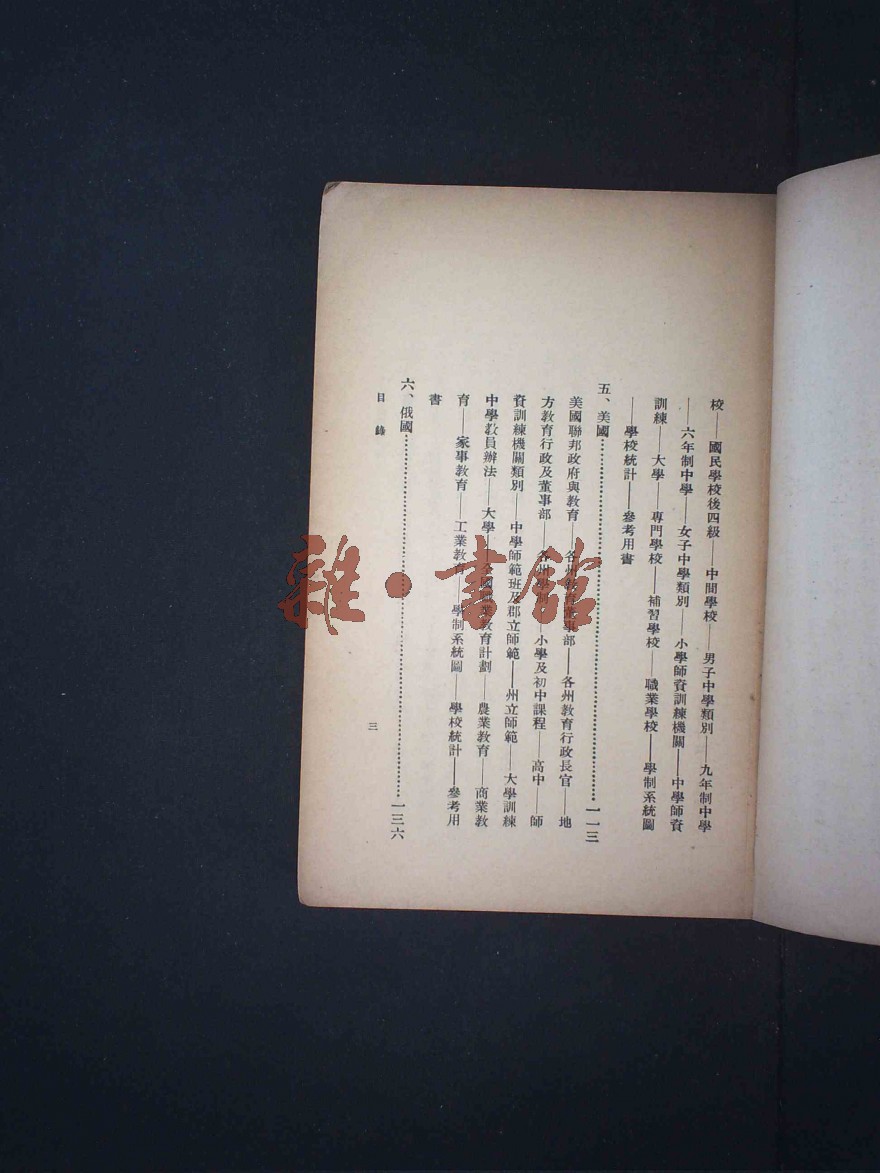 校——國民學校後四級——中間學校——男子中學類別——九年制中學
——六年制中學——女子中學類別——小學師資訓練機關——中學師資
訓練——大學——專門學校——補習學校——職業學校——學制系統圖
——學校統計——參考用書
五、美國……………………………………一一三
美國聯邦政府與教育——各州教育董事部——各州教育行政長官——地
方教育行政及董事部——各州學制——小學及初中課程——高中——師
資訓練機關類別——中學師範班及郡立師範——州立師範——大學訓練
中學教員辦法——大學——全國職業教育計劃——農業教育——商業教
育——家事教育——工業教育——學制系統圖——學校統計——參考用
書
六、俄國……………………………………一三六
目錄
三
雜·書館